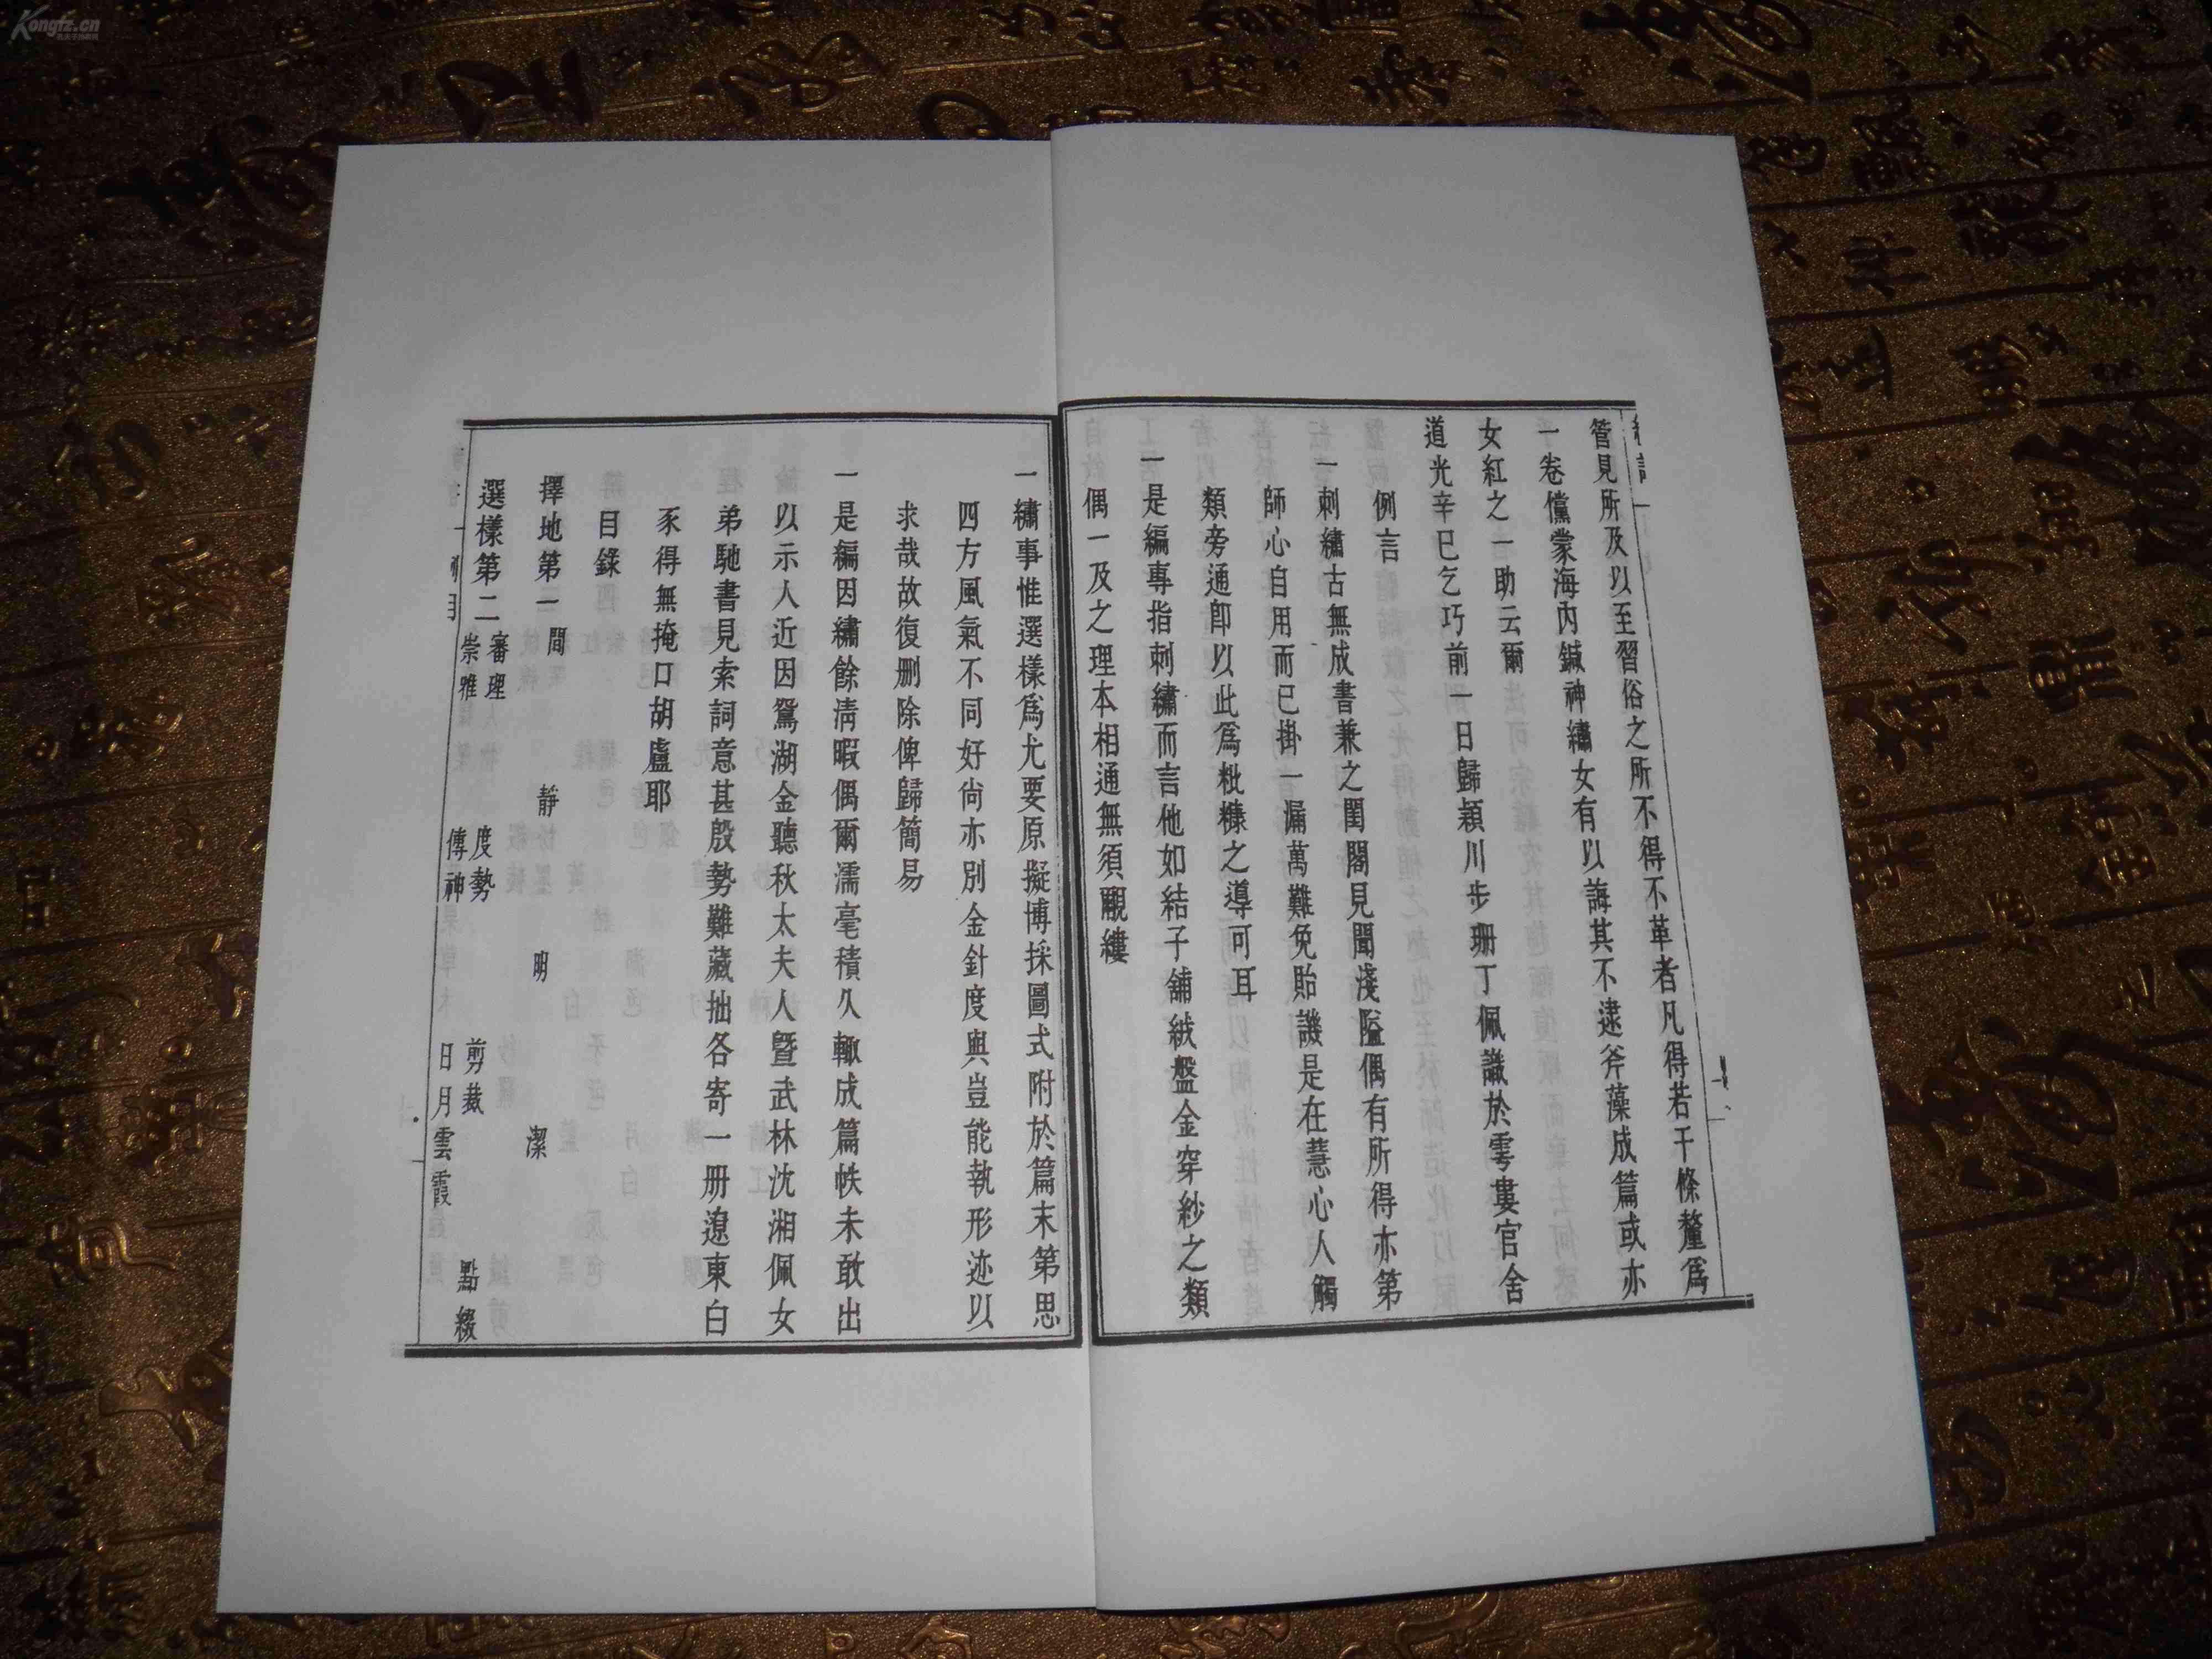 管見所及以至習俗之所不得不革者凡得若干條釐爲
一卷儻蒙海內鍼神繡女有以誨其不逮斧藻成篇或亦
女紅之一助云爾
道光辛巳乞巧前一日歸潁川步珊丁佩識於雩婁官舍
例言
一刺繡古無成書兼之閨閣見聞淺隘偶有所得亦第
師心自用而已掛一漏萬難免貽譏是在慧心人觸
類旁通卽以此爲枇糠之導可耳
一是編專指刺繡而言他如結子舖絨盤金穿紗之類
偶一及之理本相通無須覼縷
一繡事惟選樣爲尤要原擬博採圖式附於篇末第思
四方風氣不同好尙亦別金針度與豈能執形迹以
求哉故復刪除俾歸簡易
一是編因繡餘淸暇偶爾濡毫積久輙成篇帙未敢出
以示人近因鴛湖金聽秋太夫人暨武林沈湘佩女
弟馳書見索詞意甚殷勢難藏拙各寄一册遼東白
豕得無掩口胡盧耶
目錄
擇地第一 閒 靜 明 潔
選樣第二 審理 度勢 剪裁 點綴
崇雅 傳神 日月雲霞
Kongfz.cn